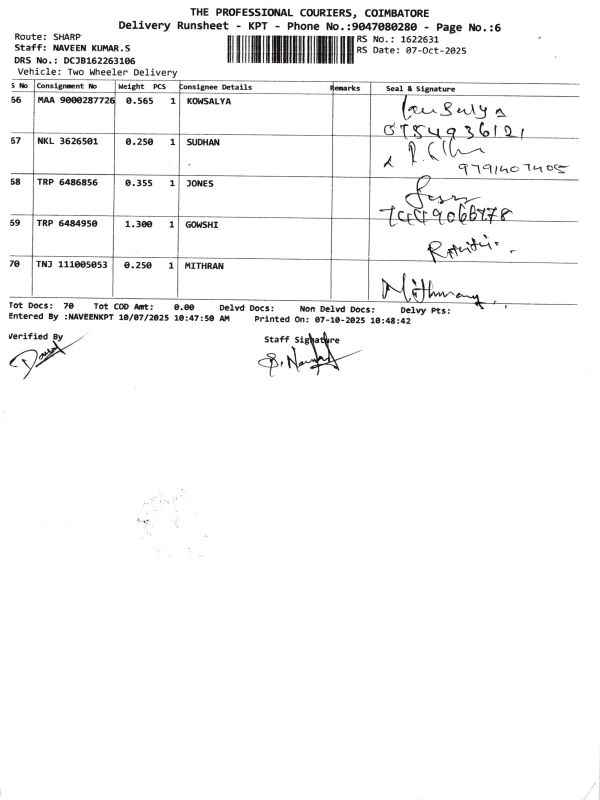 THE PROFESSIONAL COURIERS, COIMBATORE
Delivery Runsheet - KPT - Phone No.:9047080280 - Page No.:6
Route: SHARP
RS No.: 1622631
Staff: NAVEEN KUMAR.S
RS Date: 07-Oct-2025
DRS No.: DCJB162263106
Vehicle: Two Wheeler Delivery
S No Consignment No Weight PCS Consignee Details Remarks Seal & Signature
66 MAA 9000287726 0.565 1 KOWSALYA Kousalya
67 NKL 3626501 0.250 1 SUDHAN
9791407405
68 TRP 6486856 0.355 1 JONES
69 TRP 6484950 1.300 1 GOWSHI
70 TNJ 111005053 0.250 1 MITHRAN
Mithrany
Tot Docs: 70 Tot COD Amt: 0.00 Delvd Docs: Non Delvd Docs: Delvy Pts:
Entered By :NAVEENKPT 10/07/2025 10:47:50 AM Printed On: 07-10-2025 10:48:42
Verified By
Staff Signature